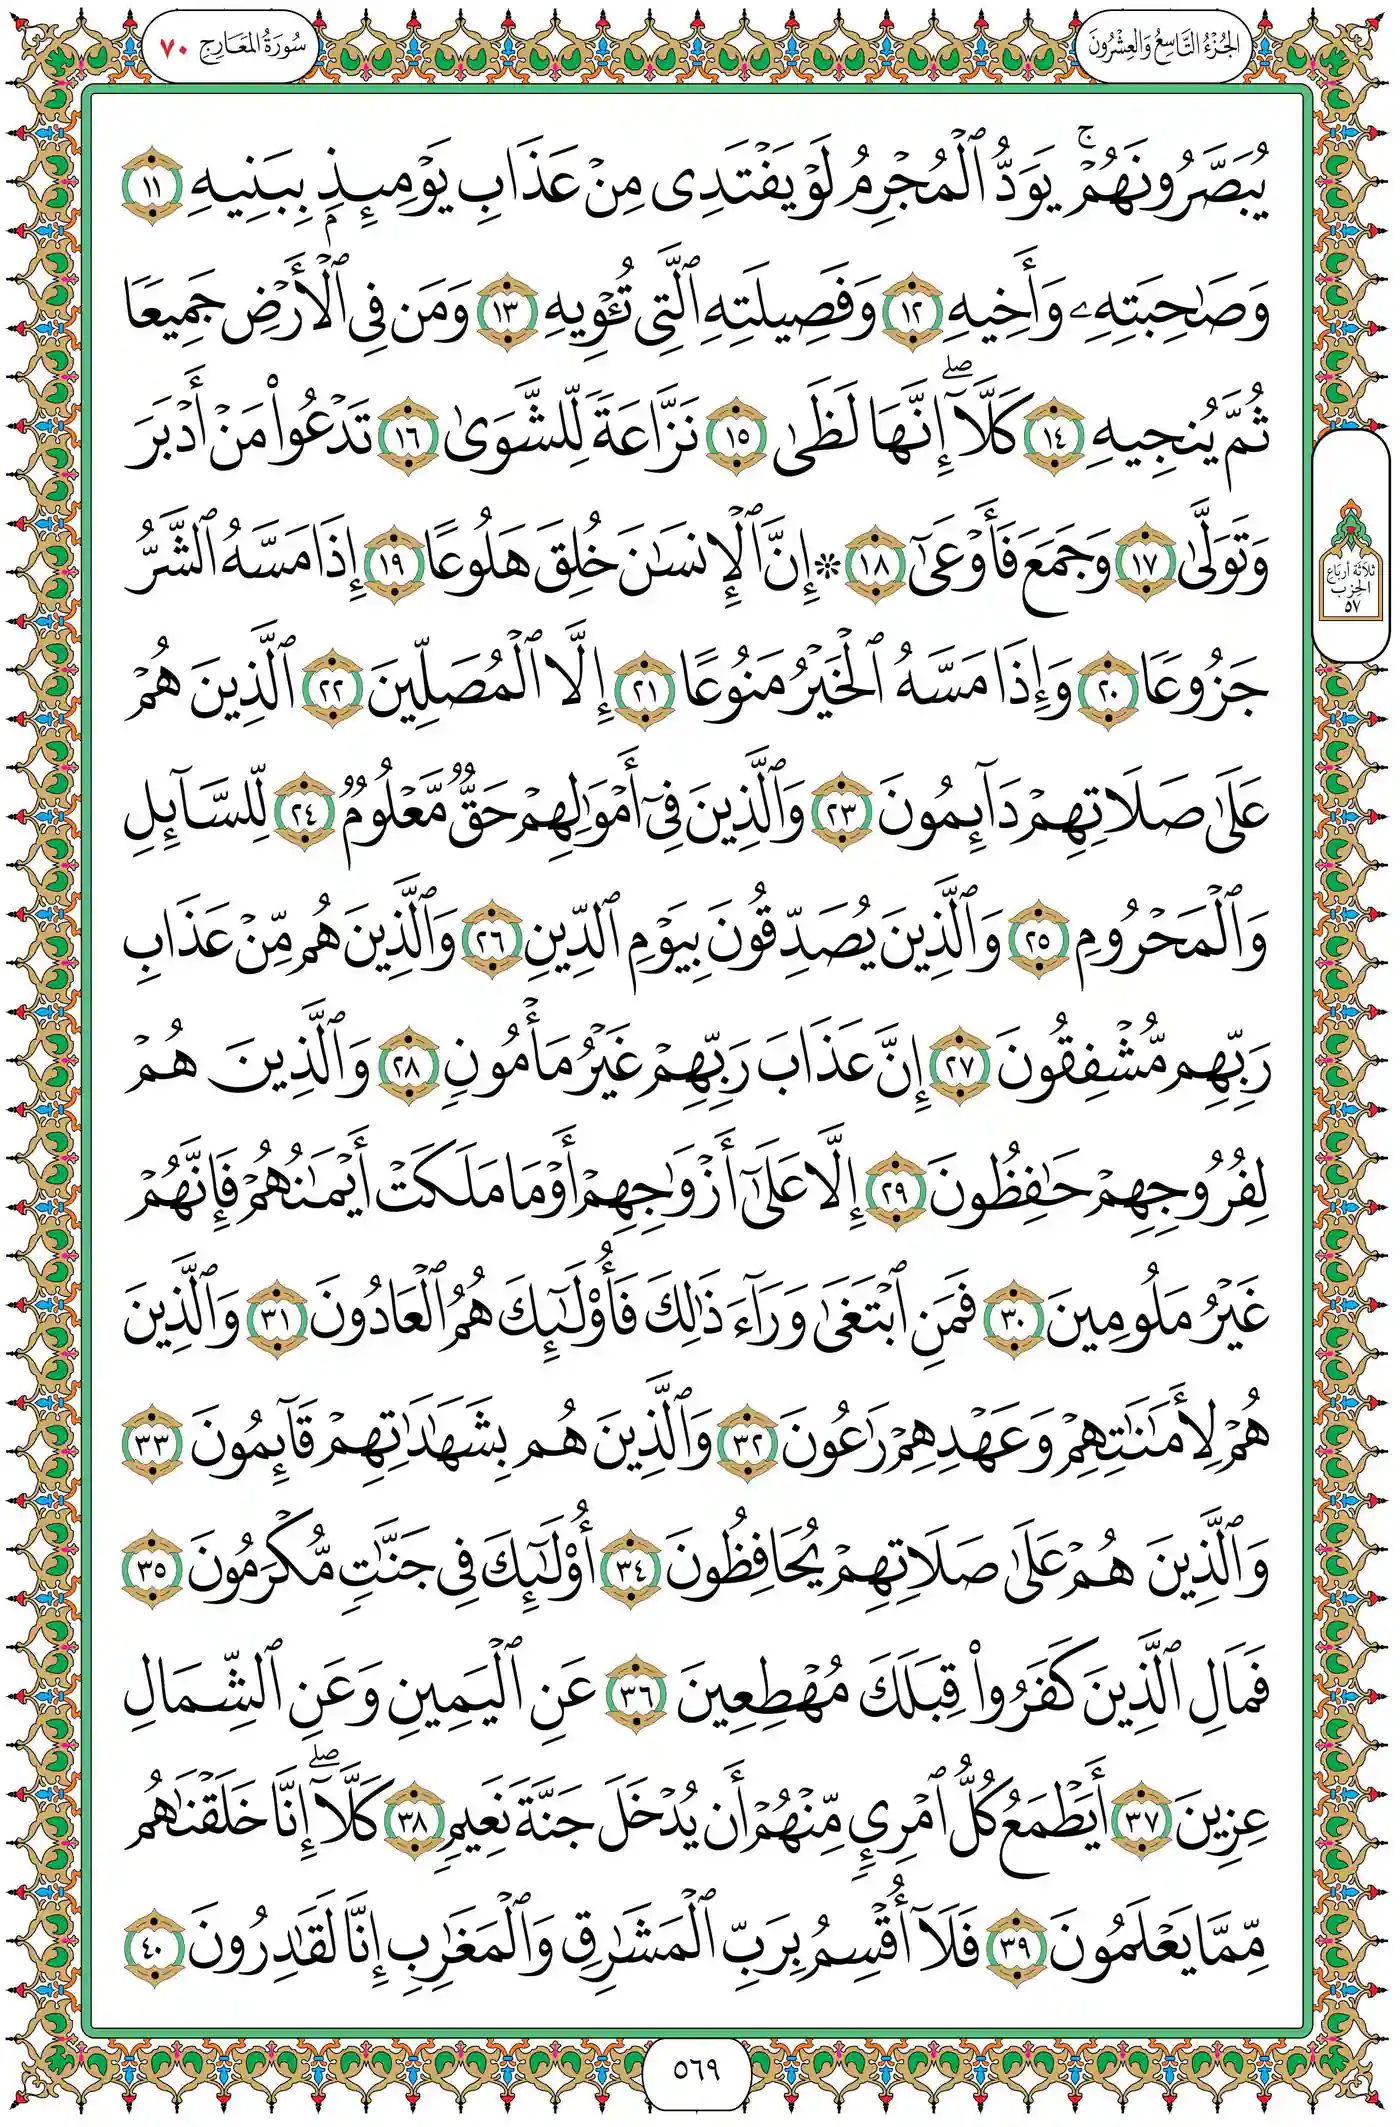 الجُزْءُ التَّاسِعُ وَالعِشْرُونَ
سُورَةُ المَعَارِجِ ٧٠
يُبَصَّرُونَهُمْۚ يَوَدُّ ٱلْمُجْرِمُ لَوْ يَفْتَدِى مِنْ عَذَابِ يَوْمِئِذٍۭ بِبَنِيهِ ١١
وَصَٰحِبَتِهِۦ وَأَخِيهِ ١٢ وَفَصِيلَتِهِ ٱلَّتِى تُـْٔوِيهِ ١٣ وَمَن فِى ٱلْأَرْضِ جَمِيعًا
ثُمَّ يُنجِيهِ ١٤ كَلَّآۖ إِنَّهَا لَظَىٰ ١٥ نَزَّاعَةً لِّلشَّوَىٰ ١٦ تَدْعُوا۟ مَنْ أَدْبَرَ
وَتَوَلَّىٰ ١٧ وَجَمَعَ فَأَوْعَىٰٓ ١٨ ۞ إِنَّ ٱلْإِنسَٰنَ خُلِقَ هَلُوعًا ١٩ إِذَا مَسَّهُ ٱلشَّرُّ
جَزُوعًا ٢٠ وَإِذَا مَسَّهُ ٱلْخَيْرُ مَنُوعًا ٢١ إِلَّا ٱلْمُصَلِّينَ ٢٢ ٱلَّذِينَ هُمْ
عَلَىٰ صَلَاتِهِمْ دَآئِمُونَ ٢٣ وَٱلَّذِينَ فِىٓ أَمْوَٰلِهِمْ حَقٌّ مَّعْلُومٌ ٢٤ لِّلسَّآئِلِ
وَٱلْمَحْرُومِ ٢٥ وَٱلَّذِينَ يُصَدِّقُونَ بِيَوْمِ ٱلدِّينِ ٢٦ وَٱلَّذِينَ هُم مِّنْ عَذَابِ
رَبِّهِم مُّشْفِقُونَ ٢٧ إِنَّ عَذَابَ رَبِّهِمْ غَيْرُ مَأْمُونٍ ٢٨ وَٱلَّذِينَ هُمْ
لِفُرُوجِهِمْ حَٰفِظُونَ ٢٩ إِلَّا عَلَىٰٓ أَزْوَٰجِهِمْ أَوْ مَا مَلَكَتْ أَيْمَٰنُهُمْ فَإِنَّهُمْ
غَيْرُ مَلُومِينَ ٣٠ فَمَنِ ٱبْتَغَىٰ وَرَآءَ ذَٰلِكَ فَأُو۟لَٰٓئِكَ هُمُ ٱلْعَادُونَ ٣١ وَٱلَّذِينَ
هُمْ لِأَمَٰنَٰتِهِمْ وَعَهْدِهِمْ رَٰعُونَ ٣٢ وَٱلَّذِينَ هُم بِشَهَٰدَٰتِهِمْ قَآئِمُونَ ٣٣
وَٱلَّذِينَ هُمْ عَلَىٰ صَلَاتِهِمْ يُحَافِظُونَ ٣٤ أُو۟لَٰٓئِكَ فِى جَنَّٰتٍ مُّكْرَمُونَ ٣٥
فَمَالِ ٱلَّذِينَ كَفَرُوا۟ قِبَلَكَ مُهْطِعِينَ ٣٦ عَنِ ٱلْيَمِينِ وَعَنِ ٱلشِّمَالِ
عِزِينَ ٣٧ أَيَطْمَعُ كُلُّ ٱمْرِئٍ مِّنْهُمْ أَن يُدْخَلَ جَنَّةَ نَعِيمٍ ٣٨ كَلَّآۖ إِنَّا خَلَقْنَٰهُم
مِّمَّا يَعْلَمُونَ ٣٩ فَلَآ أُقْسِمُ بِرَبِّ ٱلْمَشَٰرِقِ وَٱلْمَغَٰرِبِ إِنَّا لَقَٰدِرُونَ ٤٠
ثلاثة أرباع
الحزب
٥٧
٥٦٩